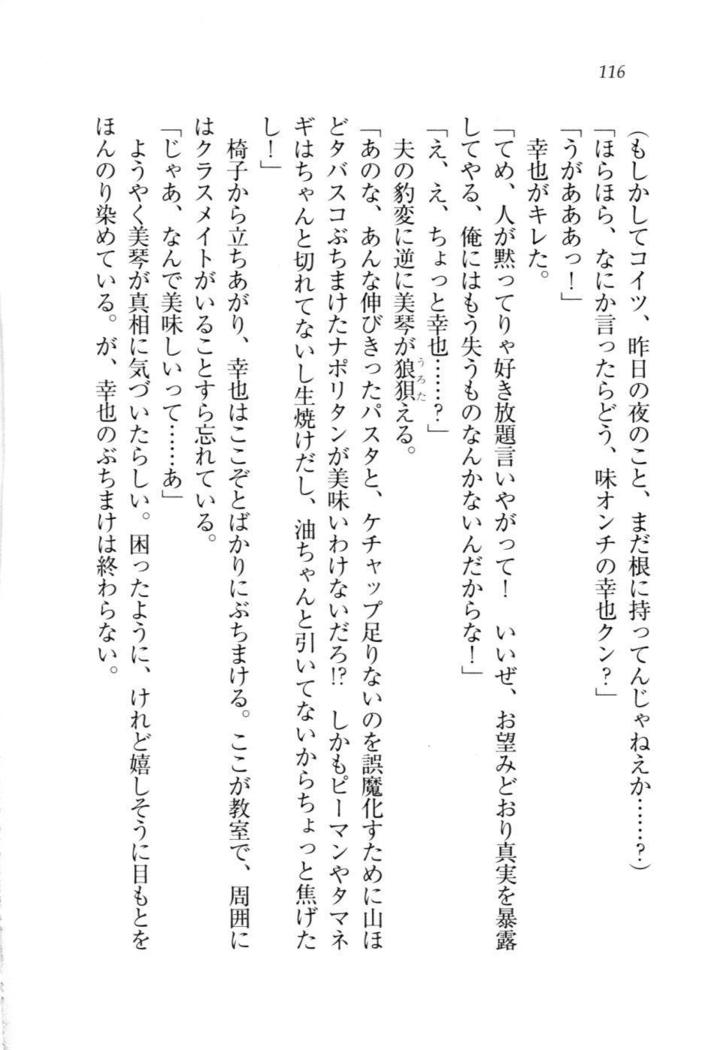 116
（もしかしてコイツ、昨日の夜のこと、まだ根に持ってんじゃねえか……？）
「ほらほら、なにか言ったらどう、味オンチの幸也クン？」
「うがあああっ！」
幸也がキレた。
「てめ、人が黙ってりゃ好き放題言いやがって！　いいぜ、お望みどおり真実を暴露
してやる、俺にはもう失うものなんかないんだからな！」
「え、え、ちょっと幸也……？」
夫の豹変に逆に美琴が狼狽える。
うろた
「あのな、あんな伸びきったパスタと、ケチャップ足りないのを誤魔化すために山ほ
どタバスコぶちまけたナポリタンが美味いわけないだろ!?　しかもピーマンやタマネ
ギはちゃんと切れてないし生焼けだし、油ちゃんと引いてないからちょっと焦げた
し！」
椅子から立ちあがり、幸也はここぞとばかりにぶちまける。ここが教室で、周囲に
はクラスメイトがいることすら忘れている。
「じゃあ、なんで美味しいって……あ」
ようやく美琴が真相に気づいたらしい。困ったように、けれど嬉しそうに目もとを
ほんのり染めている。が、幸也のぶちまけは終わらない。